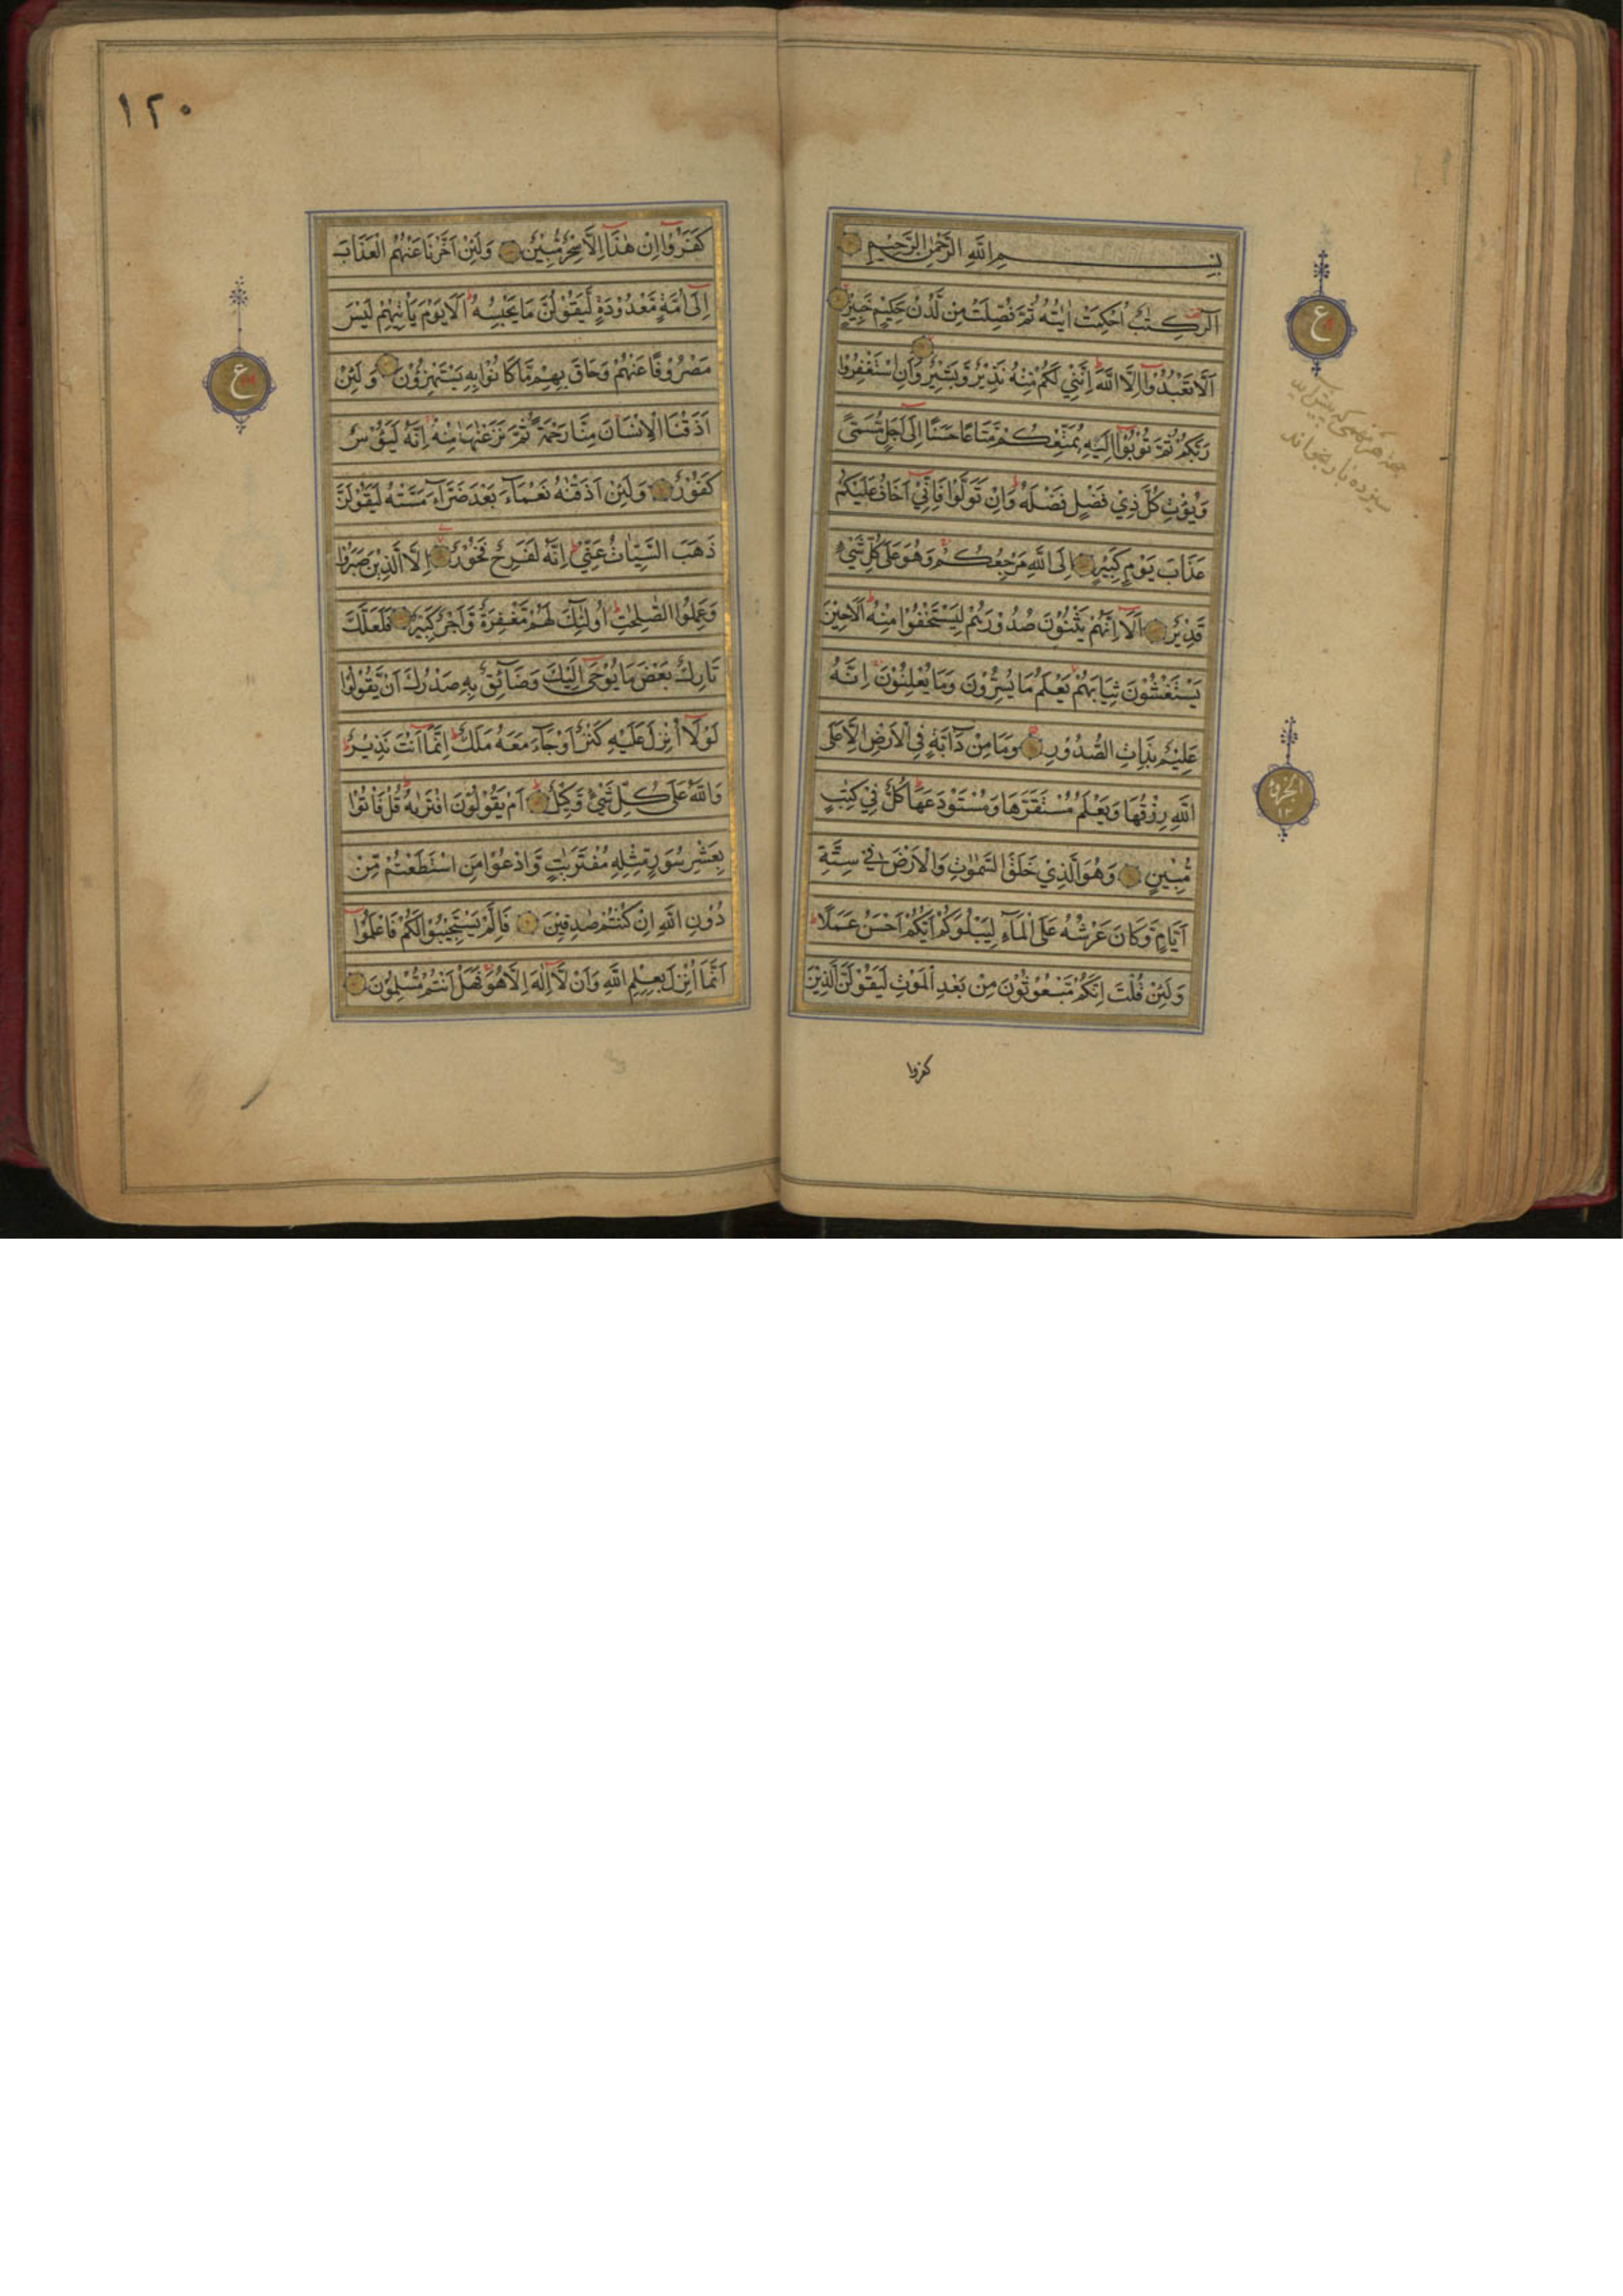 بِسْمِ اللّٰهِ الرَّحْمٰنِ الرَّحِيْمِ
الٓرٰ كِتٰبٌ اُحْكِمَتْ اٰيٰتُهُ ثُمَّ فُصِّلَتْ مِنْ لَّدُنْ حَكِيْمٍ خَبِيْرٍ
اَلَّا تَعْبُدُوْٓا اِلَّا اللّٰهَ اِنَّنِيْ لَكُمْ مِّنْهُ نَذِيْرٌ وَّبَشِيْرٌ وَاَنِ اسْتَغْفِرُوْا
رَبَّكُمْ ثُمَّ تُوْبُوْٓا اِلَيْهِ يُمَتِّعْكُمْ مَّتَاعًا حَسَنًا اِلٰٓى اَجَلٍ مُّسَمًّى
وَّيُؤْتِ كُلَّ ذِيْ فَضْلٍ فَضْلَهٗ وَاِنْ تَوَلَّوْا فَاِنِّيْٓ اَخَافُ عَلَيْكُمْ
عَذَابَ يَوْمٍ كَبِيْرٍ اِلَى اللّٰهِ مَرْجِعُكُمْ وَهُوَ عَلٰى كُلِّ شَيْءٍ
قَدِيْرٌ اَلَآ اِنَّهُمْ يَثْنُوْنَ صُدُوْرَهُمْ لِيَسْتَخْفُوْا مِنْهُ اَلَا حِيْنَ
يَسْتَغْشُوْنَ ثِيَابَهُمْ يَعْلَمُ مَا يُسِرُّوْنَ وَمَا يُعْلِنُوْنَ اِنَّهٗ
عَلِيْمٌ بِذَاتِ الصُّدُوْرِ وَمَا مِنْ دَآبَّةٍ فِي الْاَرْضِ اِلَّا عَلَى
اللّٰهِ رِزْقُهَا وَيَعْلَمُ مُسْتَقَرَّهَا وَمُسْتَوْدَعَهَا كُلٌّ فِيْ كِتٰبٍ
مُّبِيْنٍ وَهُوَ الَّذِيْ خَلَقَ السَّمٰوٰتِ وَالْاَرْضَ فِيْ سِتَّةِ
اَيَّامٍ وَّكَانَ عَرْشُهٗ عَلَى الْمَآءِ لِيَبْلُوَكُمْ اَيُّكُمْ اَحْسَنُ عَمَلًا
وَلَئِنْ قُلْتَ اِنَّكُمْ مَّبْعُوْثُوْنَ مِنْ بَعْدِ الْمَوْتِ لَيَقُوْلَنَّ الَّذِيْنَ
كفروا
ع
الجزو
١٢
١٢٠
كَفَرُوْٓا اِنْ هٰذَآ اِلَّا سِحْرٌ مُّبِيْنٌ وَلَئِنْ اَخَّرْنَا عَنْهُمُ الْعَذَابَ
اِلٰٓى اُمَّةٍ مَّعْدُوْدَةٍ لَّيَقُوْلُنَّ مَا يَحْبِسُهٗ اَلَا يَوْمَ يَاْتِيْهِمْ لَيْسَ
مَصْرُوْفًا عَنْهُمْ وَحَاقَ بِهِمْ مَّا كَانُوْا بِهٖ يَسْتَهْزِؤُنَ وَلَئِنْ
اَذَقْنَا الْاِنْسَانَ مِنَّا رَحْمَةً ثُمَّ نَزَعْنٰهَا مِنْهُ اِنَّهٗ لَيَؤُسٌ
كَفُوْرٌ وَلَئِنْ اَذَقْنٰهُ نَعْمَآءَ بَعْدَ ضَرَّآءَ مَسَّتْهُ لَيَقُوْلَنَّ
ذَهَبَ السَّيِّاٰتُ عَنِّيْ اِنَّهٗ لَفَرِحٌ فَخُوْرٌ اِلَّا الَّذِيْنَ صَبَرُوْا
وَعَمِلُوا الصّٰلِحٰتِ اُولٰٓئِكَ لَهُمْ مَّغْفِرَةٌ وَّاَجْرٌ كَبِيْرٌ فَلَعَلَّكَ
تَارِكٌ بَعْضَ مَا يُوْحٰٓى اِلَيْكَ وَضَآئِقٌ بِهٖ صَدْرُكَ اَنْ يَّقُوْلُوْا
لَوْلَآ اُنْزِلَ عَلَيْهِ كَنْزٌ اَوْ جَآءَ مَعَهٗ مَلَكٌ اِنَّمَآ اَنْتَ نَذِيْرٌ
وَاللّٰهُ عَلٰى كُلِّ شَيْءٍ وَّكِيْلٌ اَمْ يَقُوْلُوْنَ افْتَرٰىهُ قُلْ فَاْتُوْا
بِعَشْرِ سُوَرٍ مِّثْلِهٖ مُفْتَرَيٰتٍ وَّادْعُوْا مَنِ اسْتَطَعْتُمْ مِّنْ
دُوْنِ اللّٰهِ اِنْ كُنْتُمْ صٰدِقِيْنَ فَاِلَّمْ يَسْتَجِيْبُوْا لَكُمْ فَاعْلَمُوْٓا
اَنَّمَآ اُنْزِلَ بِعِلْمِ اللّٰهِ وَاَنْ لَّآ اِلٰهَ اِلَّا هُوَ فَهَلْ اَنْتُمْ مُّسْلِمُوْنَ
ع